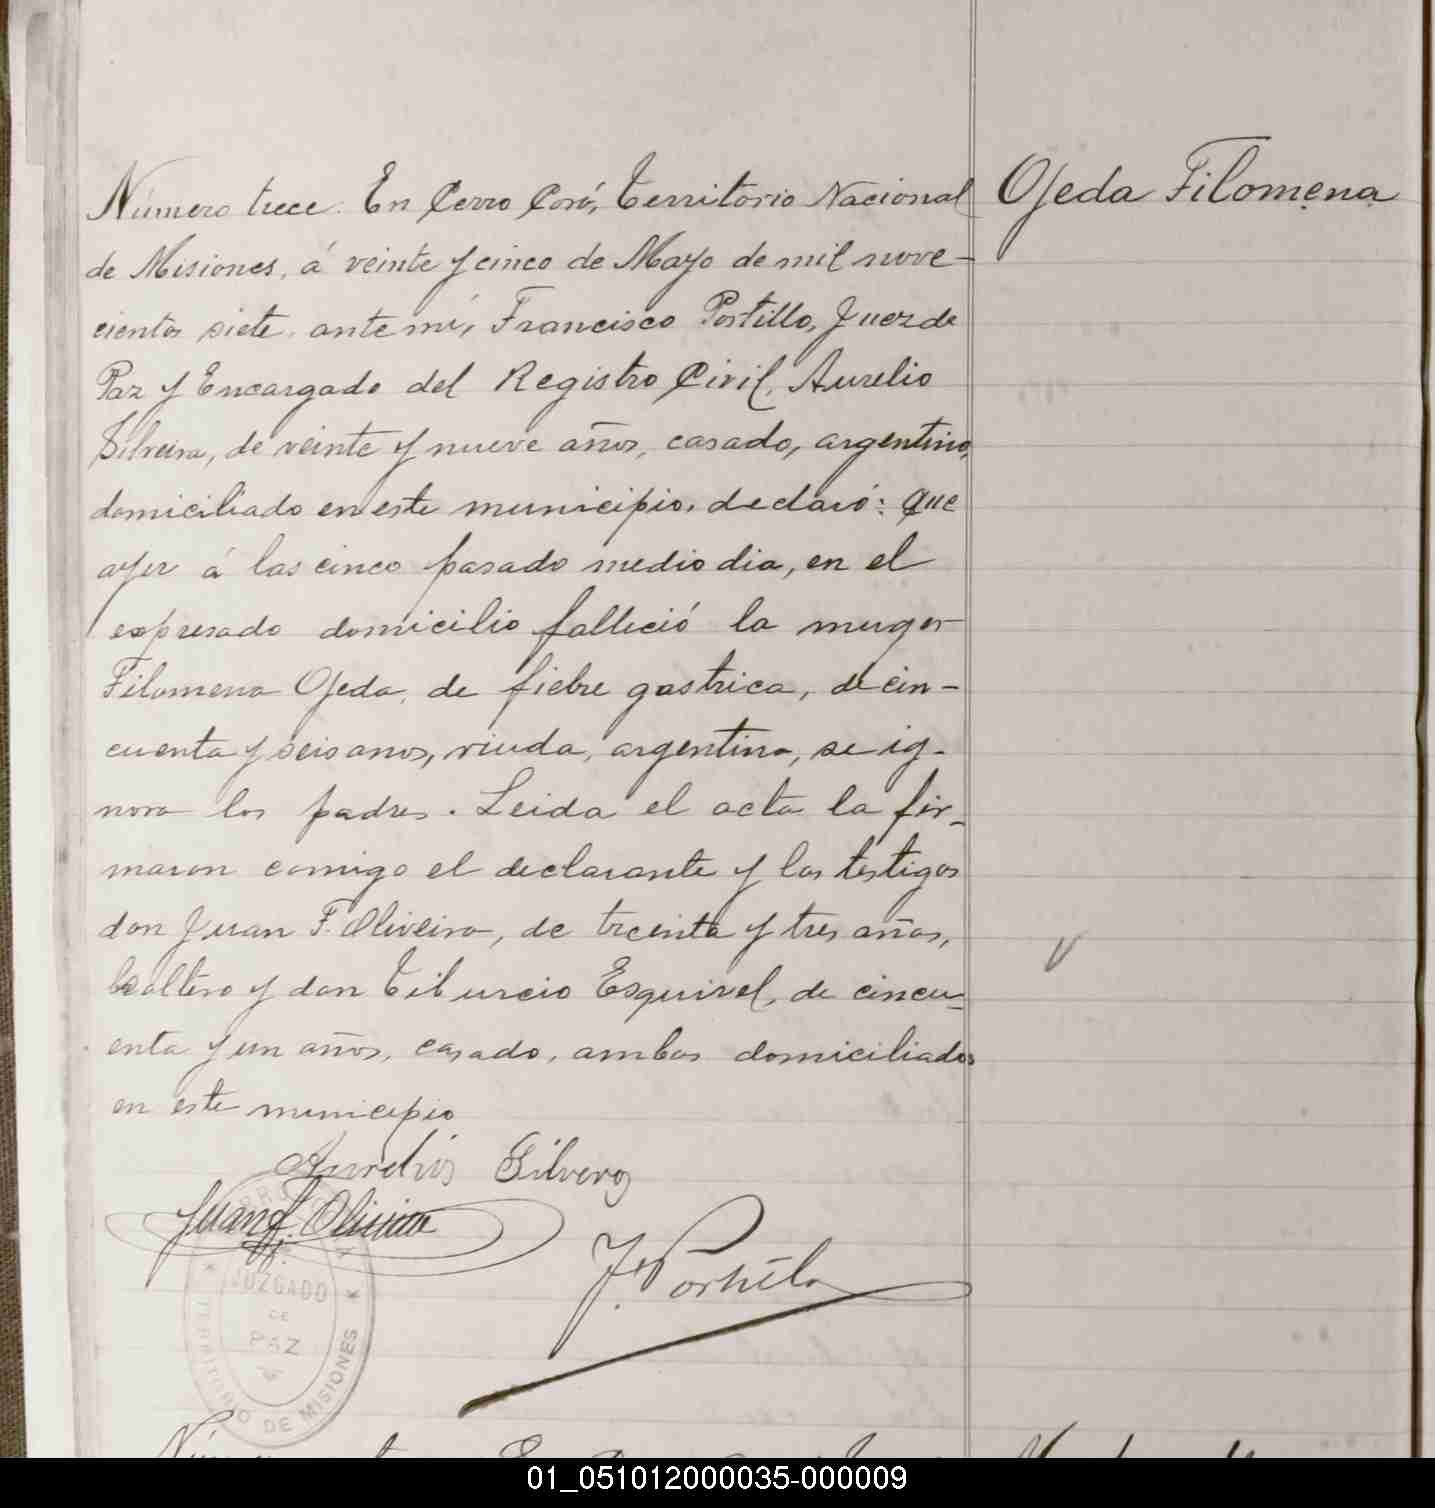 Número trece. En Cerro Corá, Territorio Nacional
Ojeda Filomena
de Misiones, á veinte y cinco de Mayo de mil nove-
cientos siete, ante mí, Francisco Portillo, Juez de
Paz y Encargado del Registro Civil, Aurelio
Silveira, de veinte y nueve años, casado, argentino,
domiciliado en este municipio, declaró: que
ayer á las cinco pasado medio dia, en el
expresado domicilio falleció la muger
Filomena Ojeda, de fiebre gastrica, de cin-
cuenta y seis anos, viuda, argentina, se ig-
nora los padres. Leida el acta la fir-
maron comigo el declarante y los testigos
don Juan F. Oliveira, de treinta y tres años,
soltero y don Tiburcio Esquivel, de cincu-
enta y un años, casado, ambos domiciliados
en este municipio
Aurelio Silvero
Juan F. Oliveira
F. Portillo
JUZGADO
DE
PAZ
TERRITORIO DE MISIONES
01_051012000035-000009